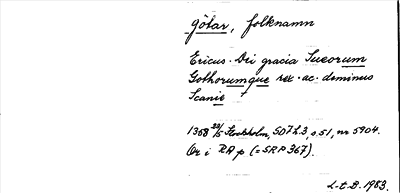 götar, folknamn
Ericus. Dei gracia Sueorum
Gothorumque rex. ac. dominus
Scanie
1358 22/5 Stockholm, SD 7 h. 3, s. 51, nr 5904.
Or i RA p (= SRP 367).
L-E.D. 1953.